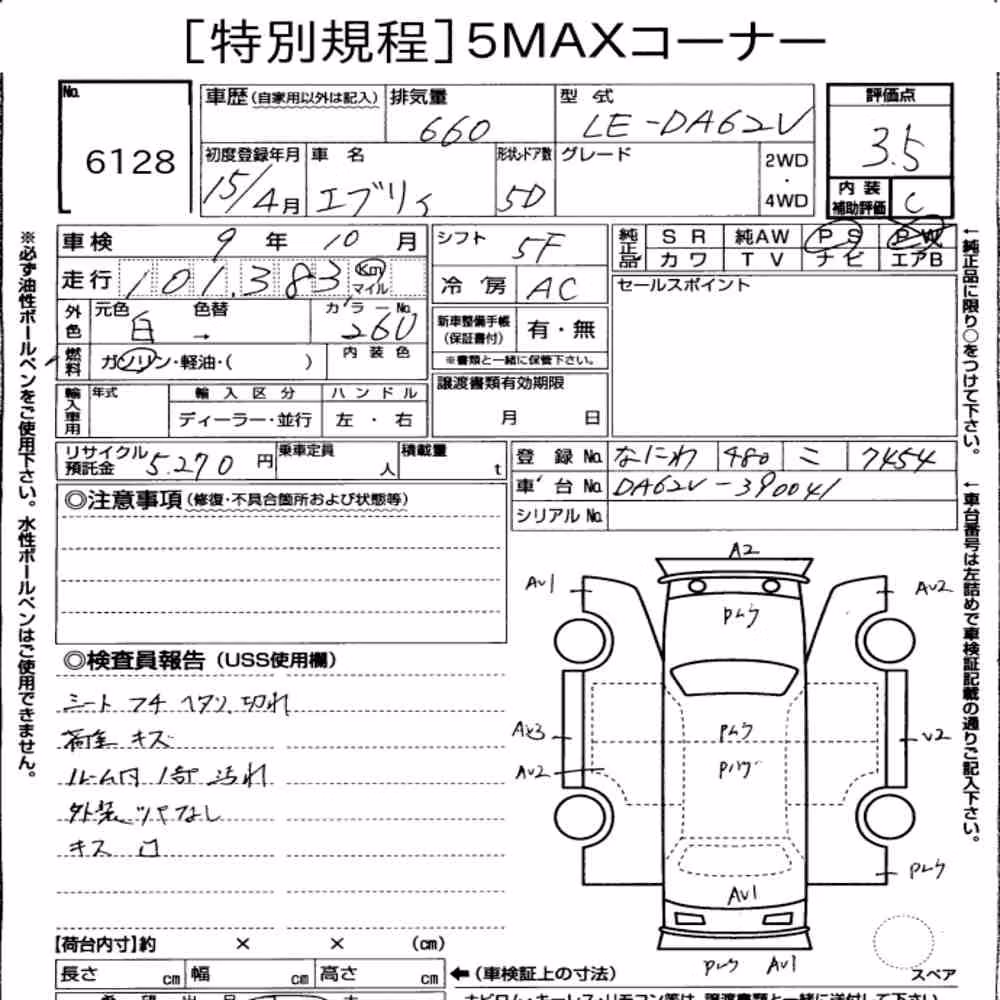 [特別規程]5MAXコーナー
No. 6128
車歴(自家用以外は記入) 排気量 660 型式 LE-DA62V 評価点 3.5
初度登録年月 15/4月 車名 エブリィ 形状ドア数 5D グレード 2WD・4WD 内装補助評価 C
車検 9年10月 シフト 5F 純正品 SR 純AW PS PW
カワ TV ナビ エアB
走行 101,383 Km マイル 冷房 AC セールスポイント
外色 元色 白 色替 → カラーNo. 260
新車整備手帳(保証書付) 有・無
※書類と一緒に保管下さい。
燃料 ガソリン・軽油・( ) 内装色
譲渡書類有効期限 月 日
輸入車用 年式 輸入区分 ハンドル
ディーラー・並行 左・右
リサイクル預託金 5,270円 乗車定員 人 積載量 t
登録No. なにわ 480 こ 7454
車台No. DA62V-390041
シリアルNo.
◎注意事項(修復・不具合箇所および状態等)
◎検査員報告(USS使用欄)
シート フチ ヘタリ.切れ
荷室 キズ
ルーム内 1部 汚れ
外装 ツヤなし
キズ 凹
A2
AV1
AV2
AX3
V2
AV2
AV1
AV1
スペア
【荷台内寸】約 × × (cm)
長さ cm 幅 cm 高さ cm ←(車検証上の寸法)
※必ず油性ボールペンをご使用下さい。水性ボールペンはご使用できません。
←純正品に限り○をつけて下さい。
←車台番号は左詰めで車検証記載の通りご記入下さい。